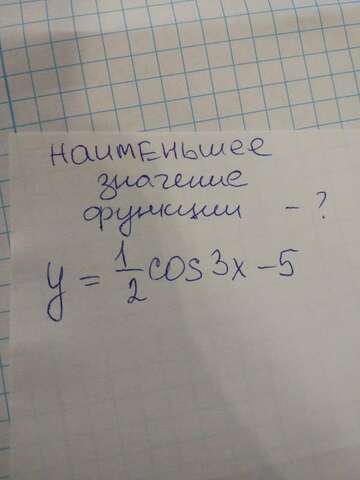 наименьшее
значение
функции - ?
y = 1/2 cos 3x - 5